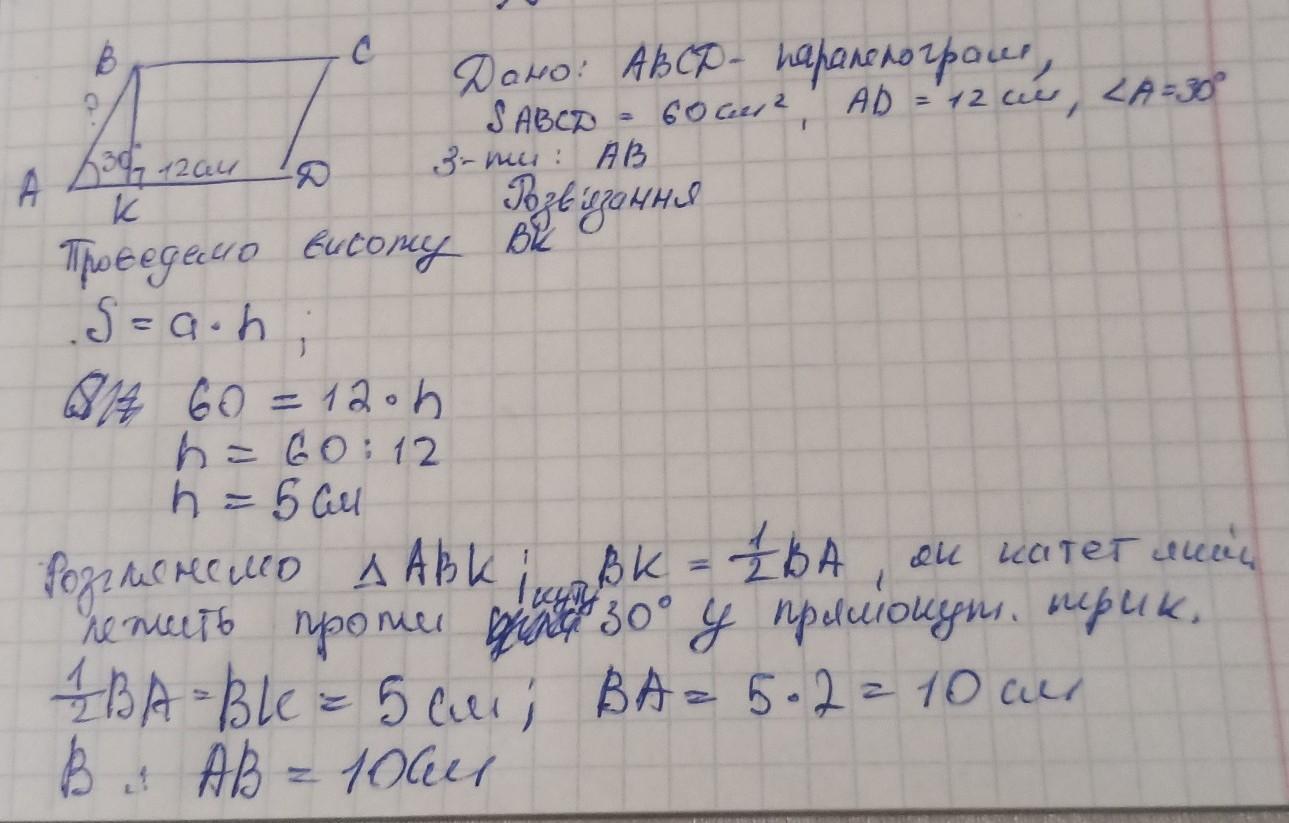 B C
? 30° 12см
A D
K
Дано: ABCD - паралелограм,
SABCD = 60 см², AD = 12 см, ∠A=30°
З-ти: AB
Розв'язання
Проведемо висоту BK
S = a · h ;
60 = 12 · h
h = 60 : 12
h = 5 см
Розглянемо △ ABK ; BK = 1/2 BA, як катет який
лежить проти кута 30° у прямокут. трик.
1/2 BA = BK = 5 см ; BA = 5 · 2 = 10 см
В : AB = 10 см